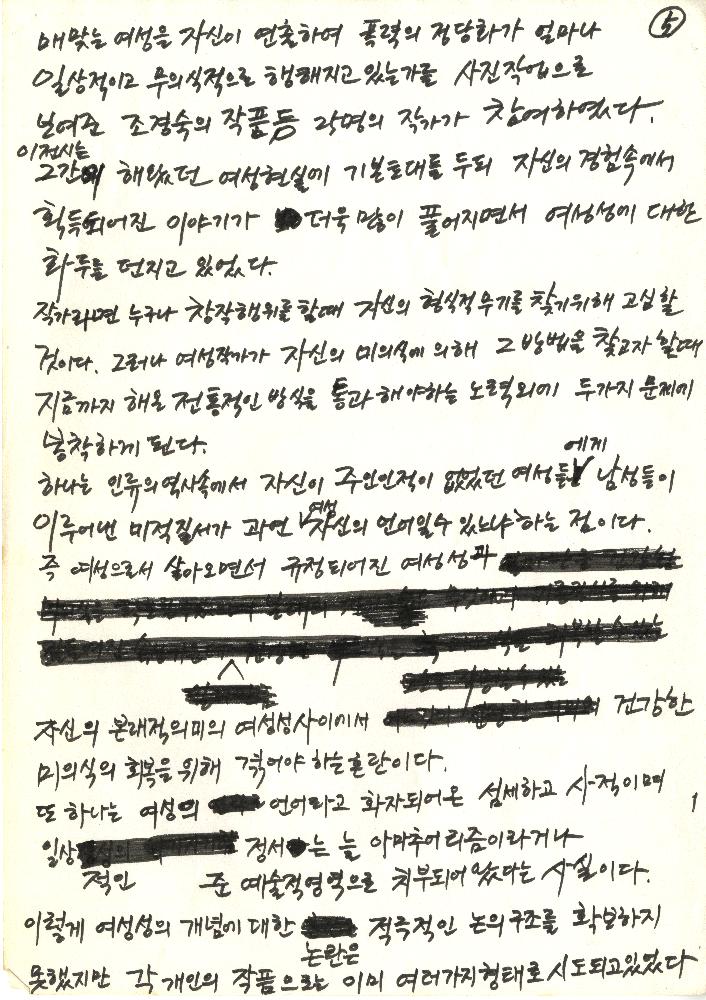 5
매맞는 여성을 자신이 연출하여 폭력의 정당화가 얼마나
일상적이고 무의식적으로 행해지고 있는가를 사진작업으로
보여준 조경숙의 작품등 각명의 작가가 참여하였다.
이전시는
그간에 해왔던 여성현실에 기본토대를 두되 자신의 경험속에서
획득되어진 이야기가 더욱 많이 풀어지면서 여성성에 대한
화두를 던지고 있었다.
작가라면 누구나 창작행위를 할때 자신의 형식적무기를 찾기위해 고심할
것이다. 그러나 여성작가가 자신의 미의식에 의해 그 방법을 찾고자 할때
지금까지 해온 전통적인 방식을 통과 해야하는 노력외에 두가지 문제에
봉착하게 된다.
에게
하나는 인류의역사속에서 자신이 주인인적이 없었던 여성들 남성들이
여성
이루어낸 미적질서가 과연 자신의 언어일수 있느냐 하는 점이다.
즉 여성으로서 살아오면서 규정되어진 여성성과
자신의 본래적의미의 여성성사이에서 건강한
미의식의 회복을 위해 겪어야 하는혼란이다.
또 하나는 여성의 언어라고 화자되어온 섬세하고 사적이며
일상 정서는 늘 아마추어리즘이라거나
적인 준 예술적영역으로 치부되어 왔다는 사실이다.
이렇게 여성성의 개념에 대한 적극적인 논의구조를 확보하지
논란은
못했지만 각 개인의 작품으로는 이미 여러가지형태로 시도되고있었다